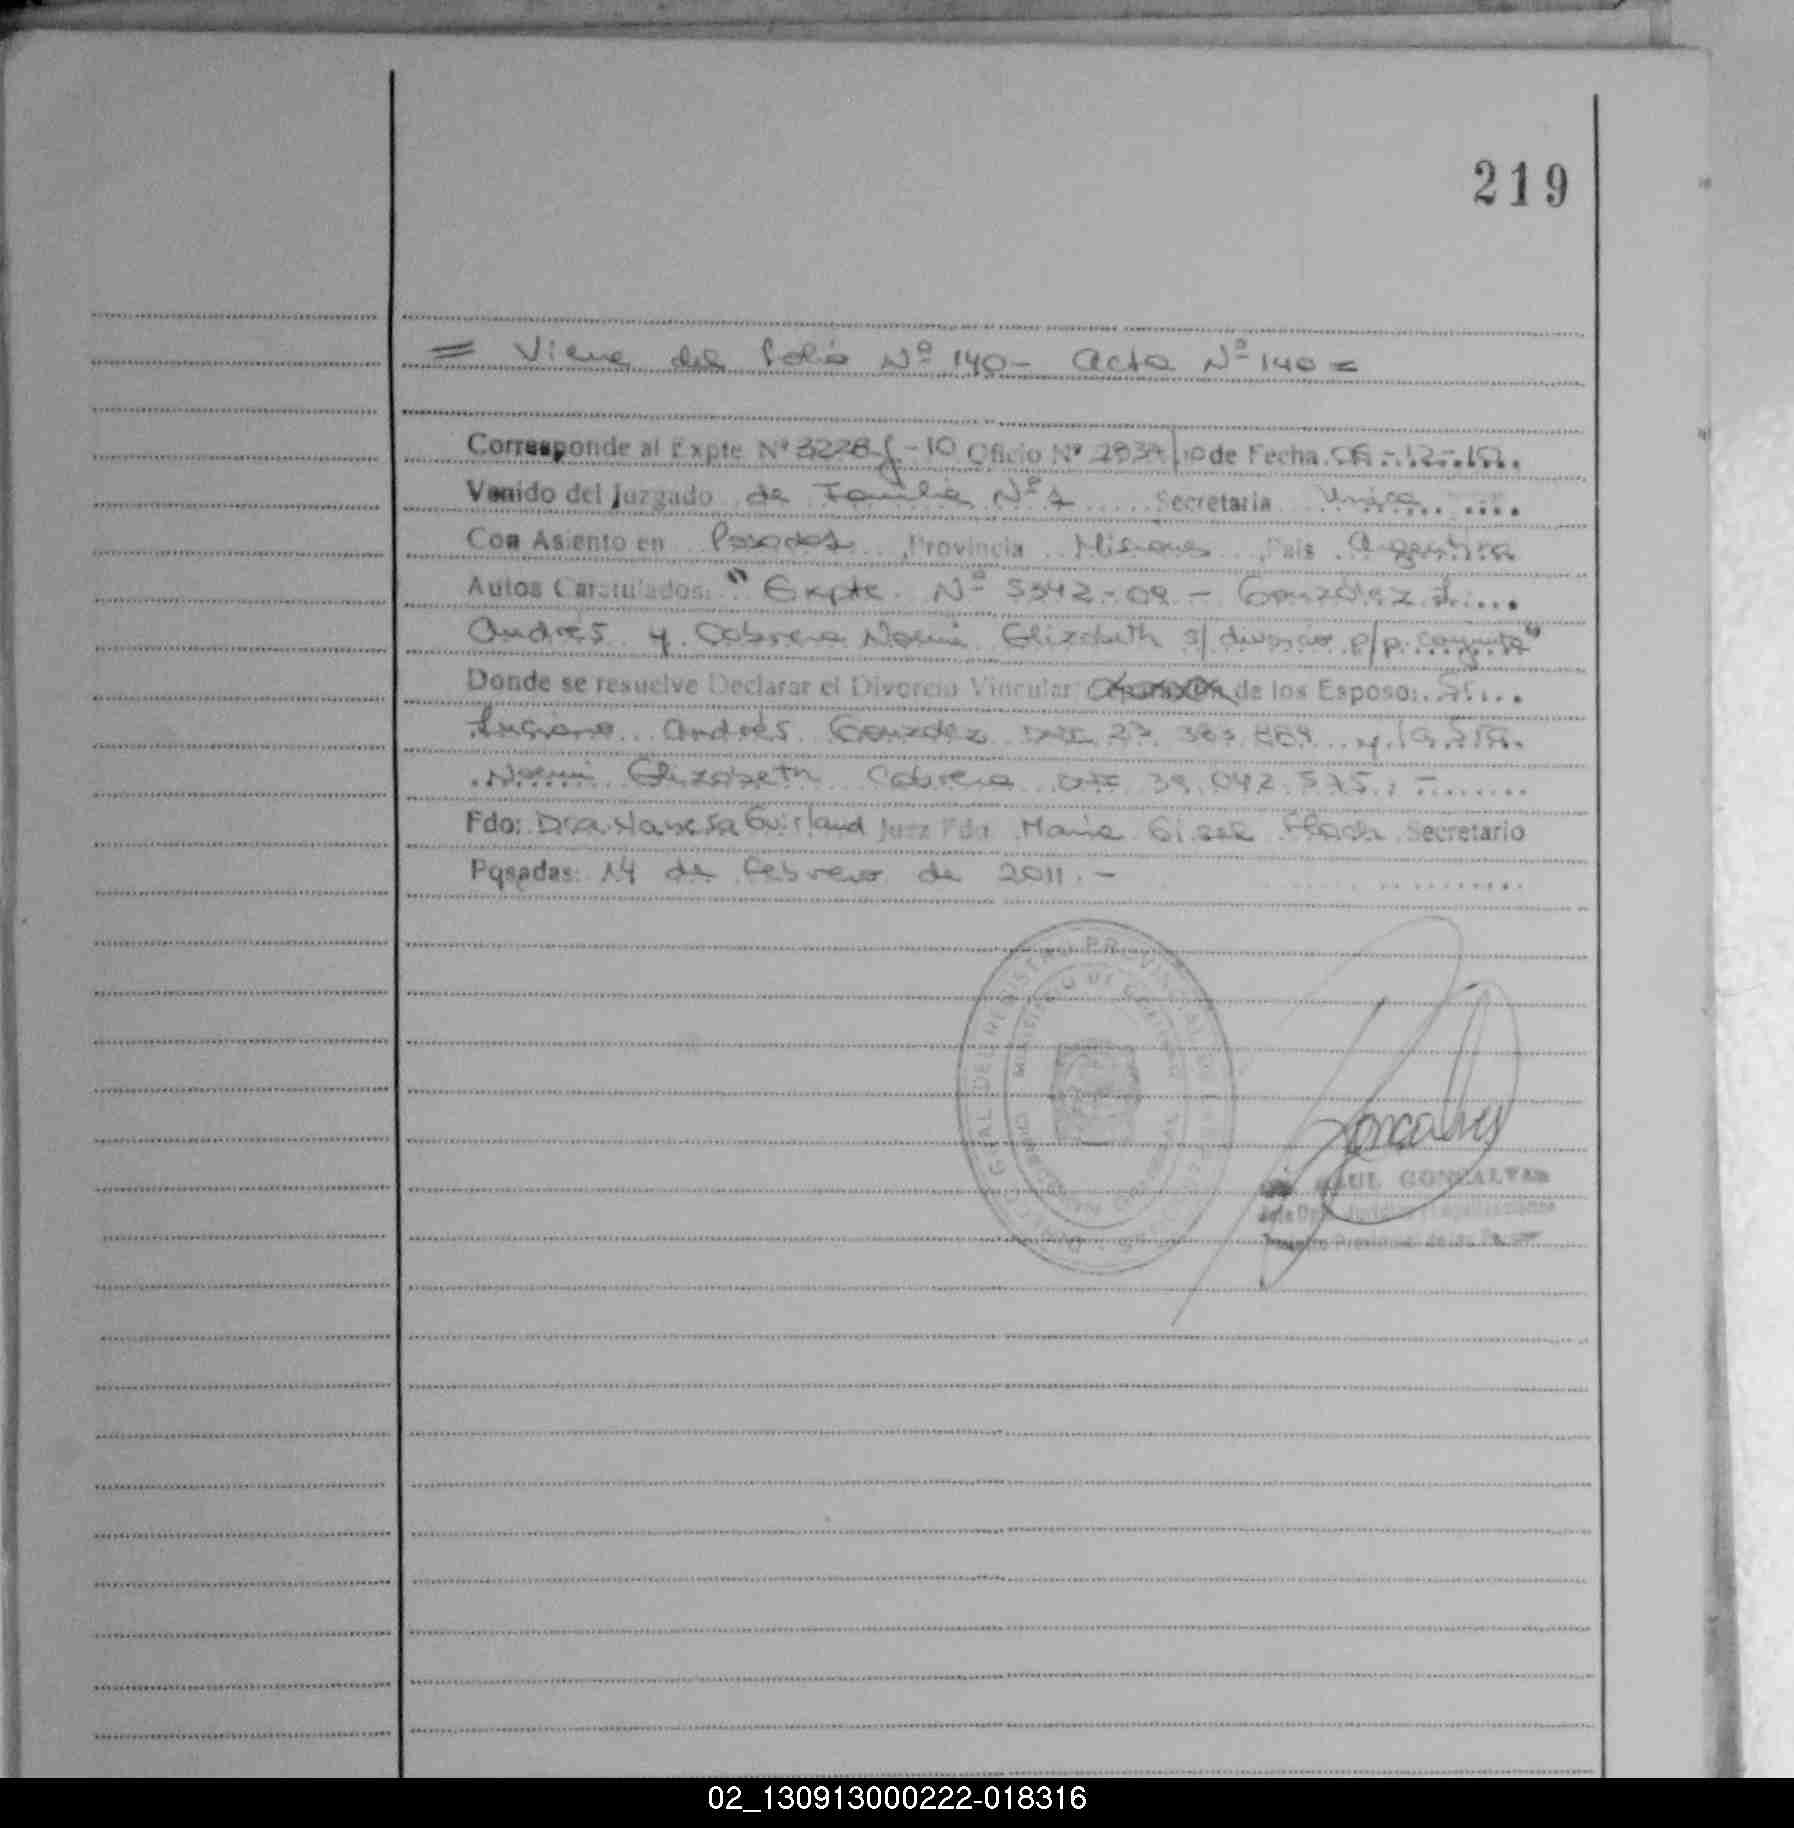 219
= Viene del folio Nº 140 - acta Nº 140 =
Corresponde al Expte Nº 3228-f-10 Oficio Nº 2937/10 de Fecha 06-12-10.
Venido del Juzgado de Familia Nº 1 Secretaria Unica
Con Asiento en Posadas, Provincia Misiones, Pais Argentina
Autos Caratulados: "Expte. Nº 5342-09 - González L.
Andrés y Cabrera Noemi Elizabeth s/ divorcio p/p. conjunta"
Donde se resuelve Declarar el Divorcio Vincular de los Esposo: Sr.
Luciano Andrés González DNI 27. 383. y la Sra.
Noemi Elizabeth Cabrera DNI 39.042.575.; -
Fdo: Dra Vanesa Guirland Juez Fdo. Maria Gisel Secretario
Posadas: 14 de febrero de 2011. -
GRAL DEL REGISTRO PROVINCIAL DE LAS
MINISTERIO DE GOBIERNO
Goncalves
RAUL GONCALVES
Jefe Dpto. Jurídico
Provincial de las Personas
02_130913000222-018316